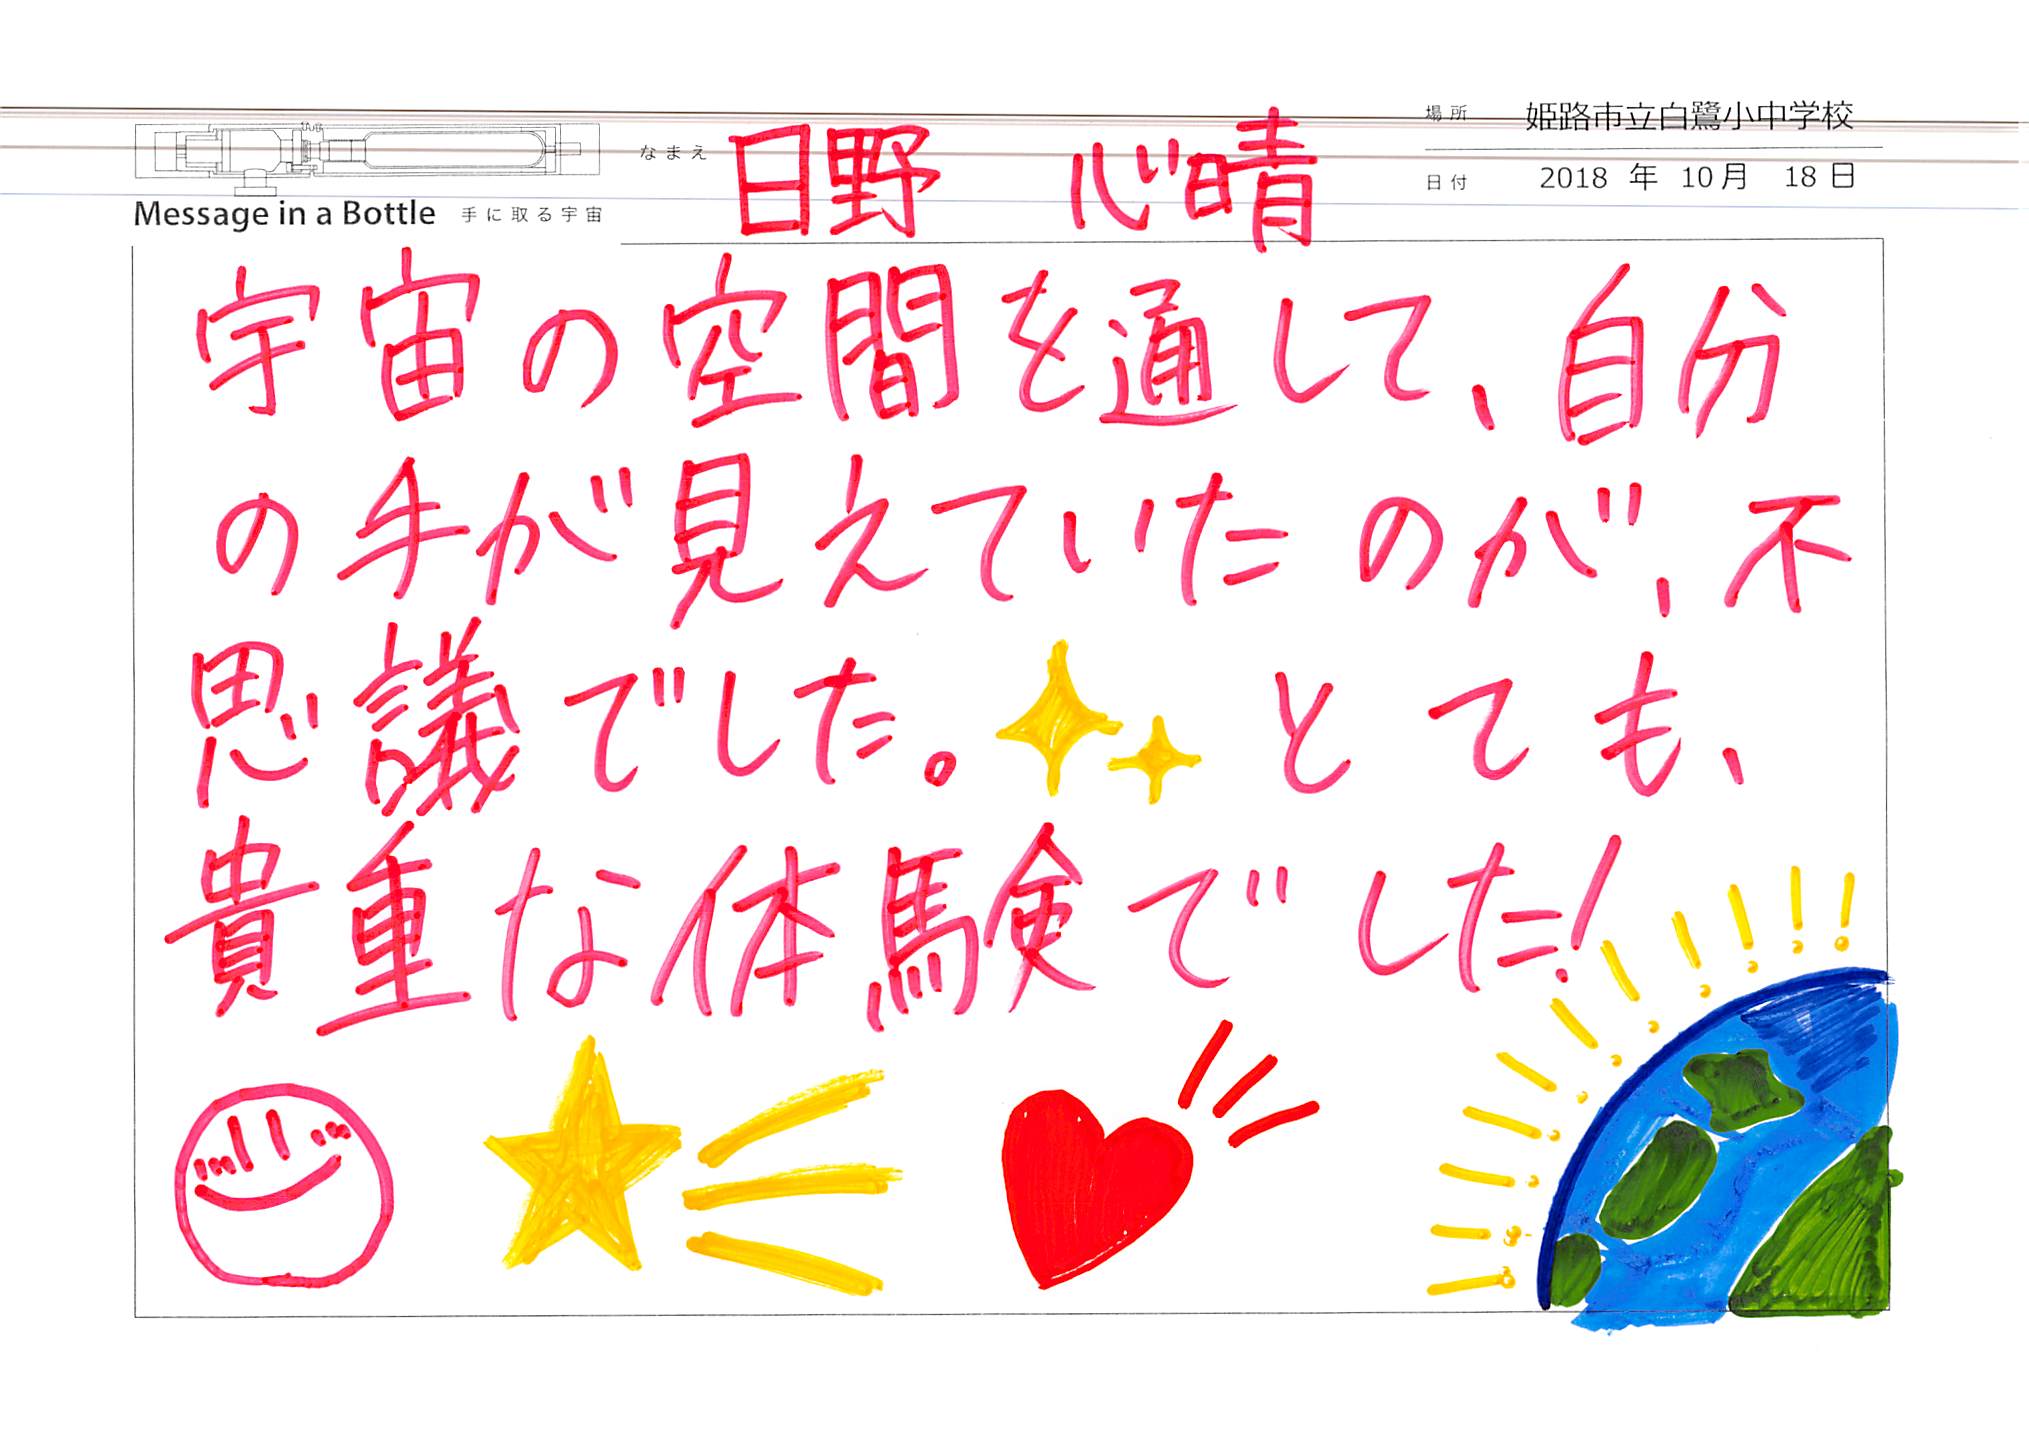 場所 姫路市立白鷺小中学校
なまえ 日野 心晴
日付 2018 年 10 月 18 日
Message in a Bottle 手に取る宇宙
宇宙の空間を通して、自分
の手が見えていたのが、不
思議でした。とても、
貴重な体験でした!